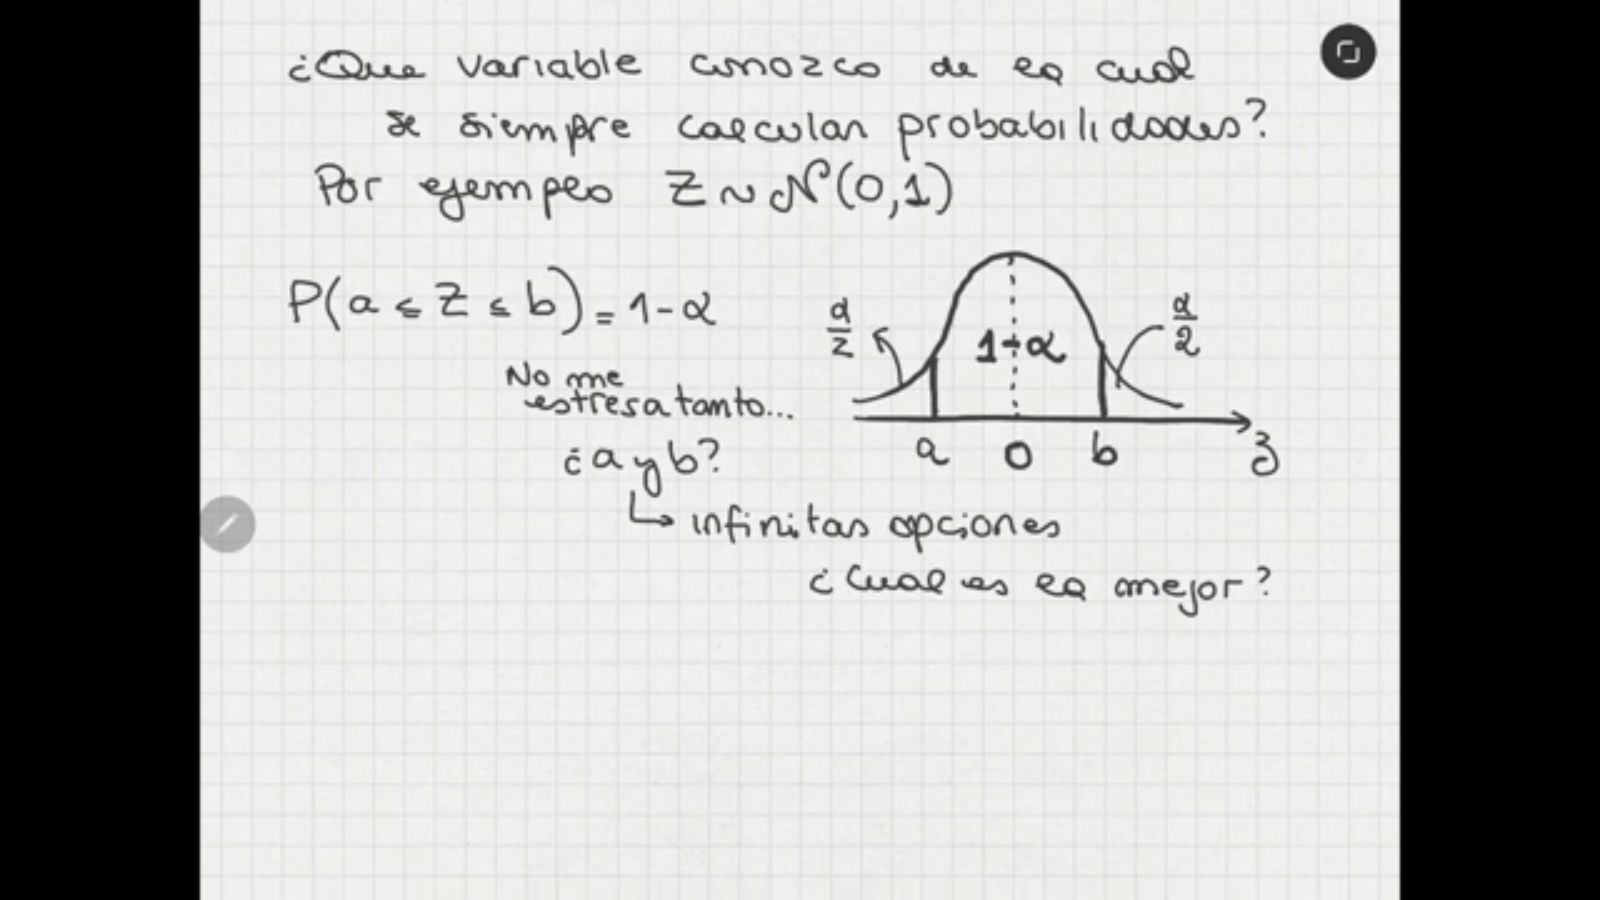 ¿Que variable conozco de la cual
se siempre calcular probabilidades?
Por ejemplo Z ~ N(0,1)
P(a ≤ Z ≤ b) = 1-α
No me
estresa tanto...
¿a y b?
↳ infinitas opciones
¿Cual es la mejor?
α/2
1-α
α/2
a 0 b z